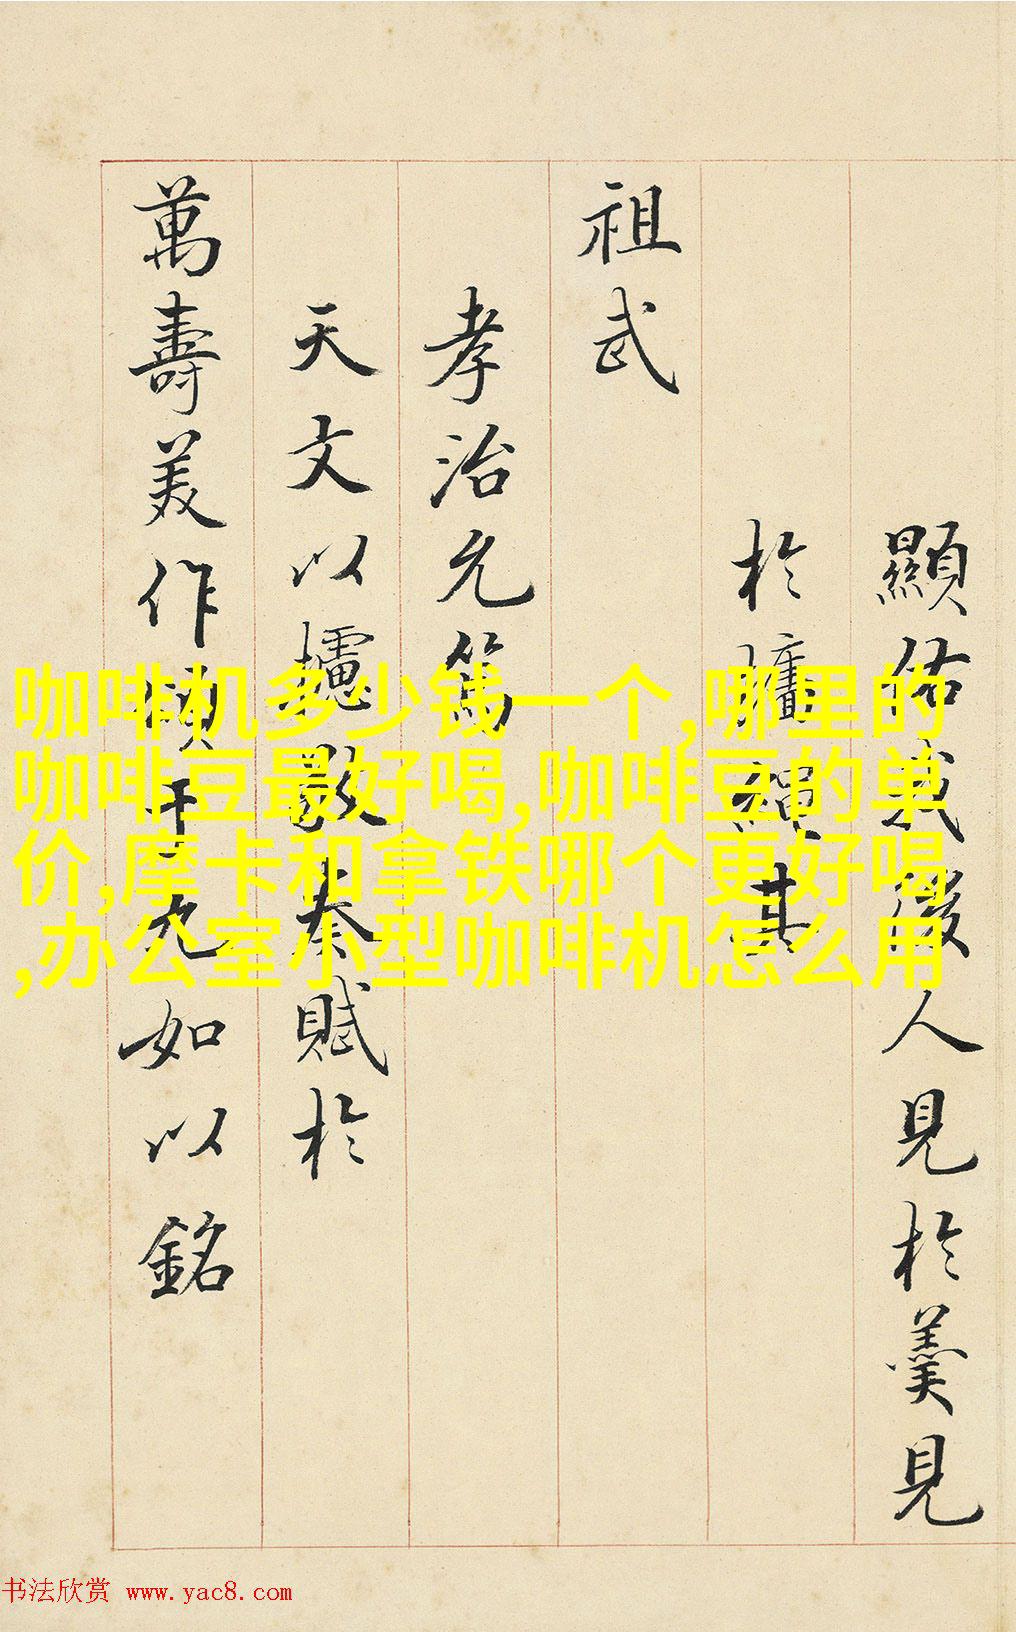 顯佑我後人見於羹見
於牆禪其
祖武
孝治允篤
天文以攄歌奏賦於
萬壽美作頌千九如以銘
咖啡机多少钱一个,哪里的
咖啡豆最好喝,咖啡豆的单
价,摩卡和拿铁哪个更好喝
,办公室小型咖啡机怎么用
书法欣赏 www.yac8.com